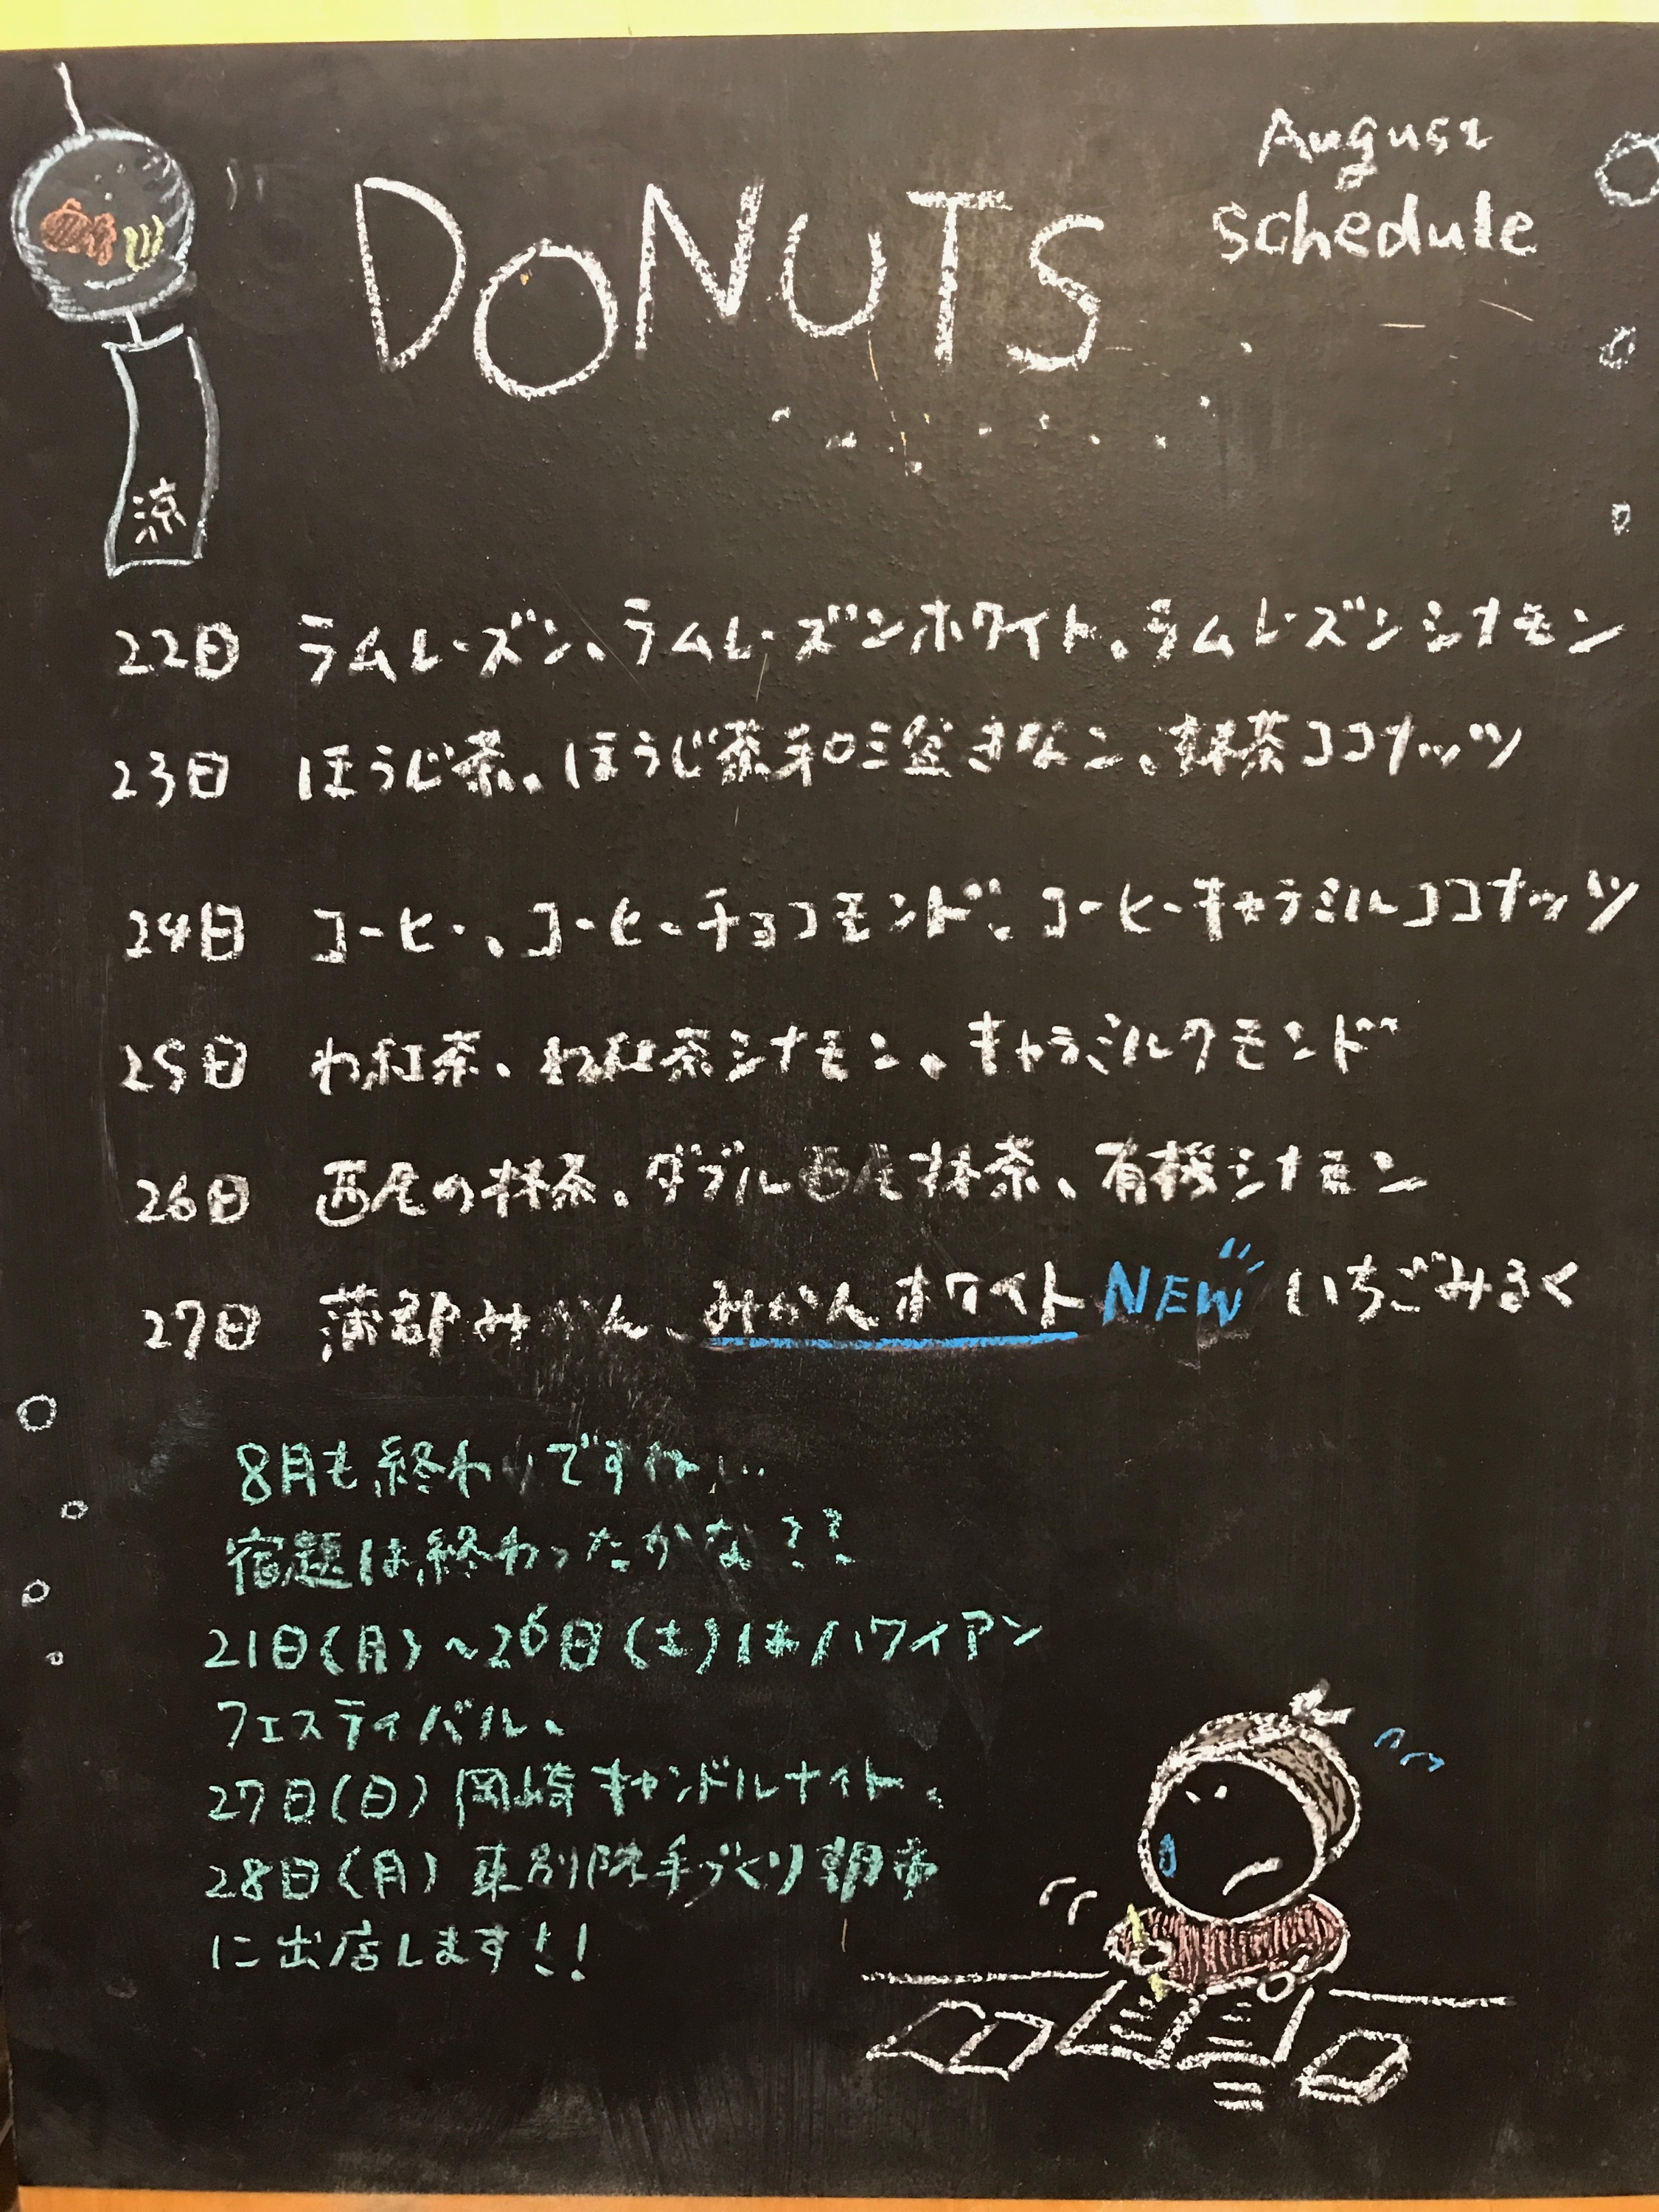 August
DONUTS
schedule
涼
22日 ラムレーズン、ラムレーズンホワイト、ラムレーズンシナモン
23日 ほうじ茶、ほうじ茶和三盆きなこ、抹茶ココナッツ
24日 コーヒー、コーヒーチョコモンド、コーヒーキャラミルココナッツ
25日 わ紅茶、わ紅茶シナモン、キャラミルクモンド
26日 西尾の抹茶、ダブル西尾抹茶、有機シナモン
27日 蒲郡みかん、みかんホワイト NEW いちごみるく
8月も終わりですね…
宿題は終わったかな??
21日(月)~26日(土)はハワイアン
フェスティバル、
27日(日)岡崎キャンドルナイト、
28日(月)東別院手づくり朝市
に出店します!!